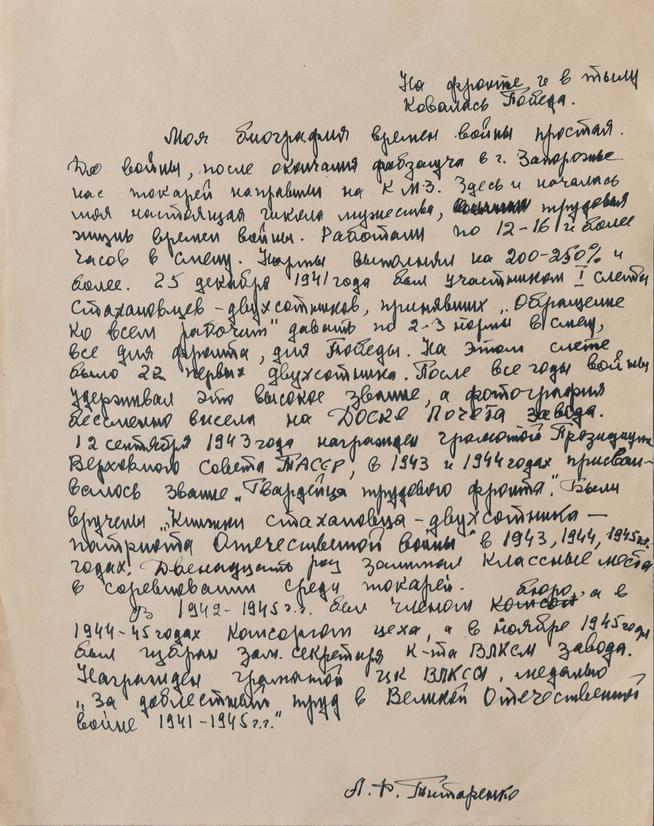 На фронте и в тылу
ковалась Победа.
Моя биография времен войны простая.
До войны, после окончания фабзауча в г. Запорожье
нас токарей направили на КМЗ. Здесь и началась
моя настоящая школа мужества, трудовая
жизнь времен войны. Работали по 12-16 и более
часов в смену. Нормы выполнял на 200-250% и
более. 25 декабря 1941 года был участником I слета
стахановцев-двухсотников, принявших „Обращение
ко всем рабочим" давать по 2-3 нормы в смену,
все для фронта, для Победы. На этом слете
было 22 первых двухсотника. После все годы войны
удерживал это высокое звание, а фотография
бессменно висела на ДОСКЕ ПОЧЕТА завода.
12 сентября 1943 года награжден грамотой Президиума
Верховного Совета ТАССР, в 1943 и 1944 годах присваи-
валось звание „Гвардейца трудового фронта". Были
вручены „Книжки стахановца-двухсотника —
патриота Отечественной войны" в 1943, 1944, 1945 г.г.
годах. Двенадцать раз занимал классные места
в соревновании среди токарей.
Уз 1942-1945 г.г. был членом бюро, а в
1944-45 годах комсоргом цеха, а в ноябре 1945 года
был избран зам. секретаря к-та ВЛКСМ завода.
Награжден грамотой ЦК ВЛКСМ, медалью
„За доблестный труд в Великой Отечественной
войне 1941-1945 г.г."
А. Ф. Титаренко